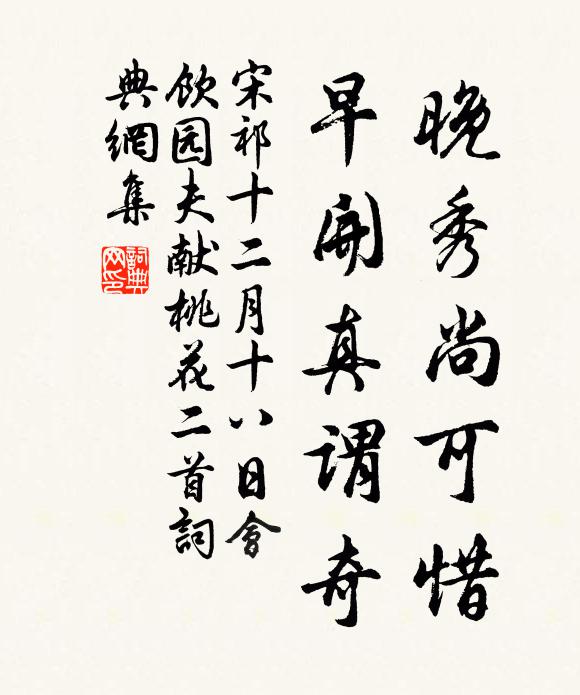 晚秀尚可惜
早開真谓奇
宋祁十二月十八日會
饮园夫献桃花二首詞
典網集
詞典
网印